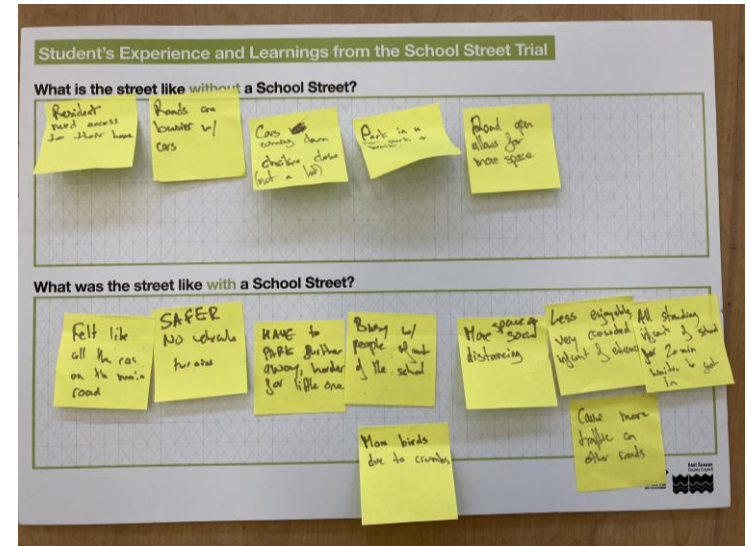 Student's Experience and Learnings from the School Street Trial
What is the street like without a School Street?
Resident
need access
to their home
Roads are
busier w/
cars
Cars
coming down
(not a lot)
Park in a
Road open
allows for
more space
What was the street like with a School Street?
Felt like
all the cars
on the main
road
SAFER
No vehicle
HAVE to
PARK further
away, harder
for little one
Busy w/
people
of the school
More space
social
distancing
Less enjoyable
very crowded
All standing
for 20 min
to get
in
More birds
due to crumbs
Cause more
traffic on
other roads
East Sussex
County Council